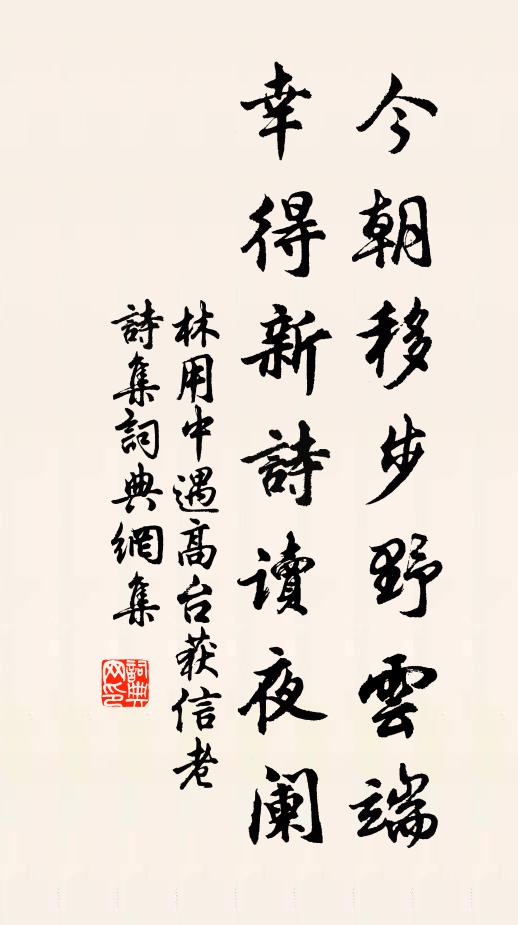 今朝移步野雲端
幸得新詩读夜阑
林用中遇高台获信老
詩集詞典網集
詞典网印